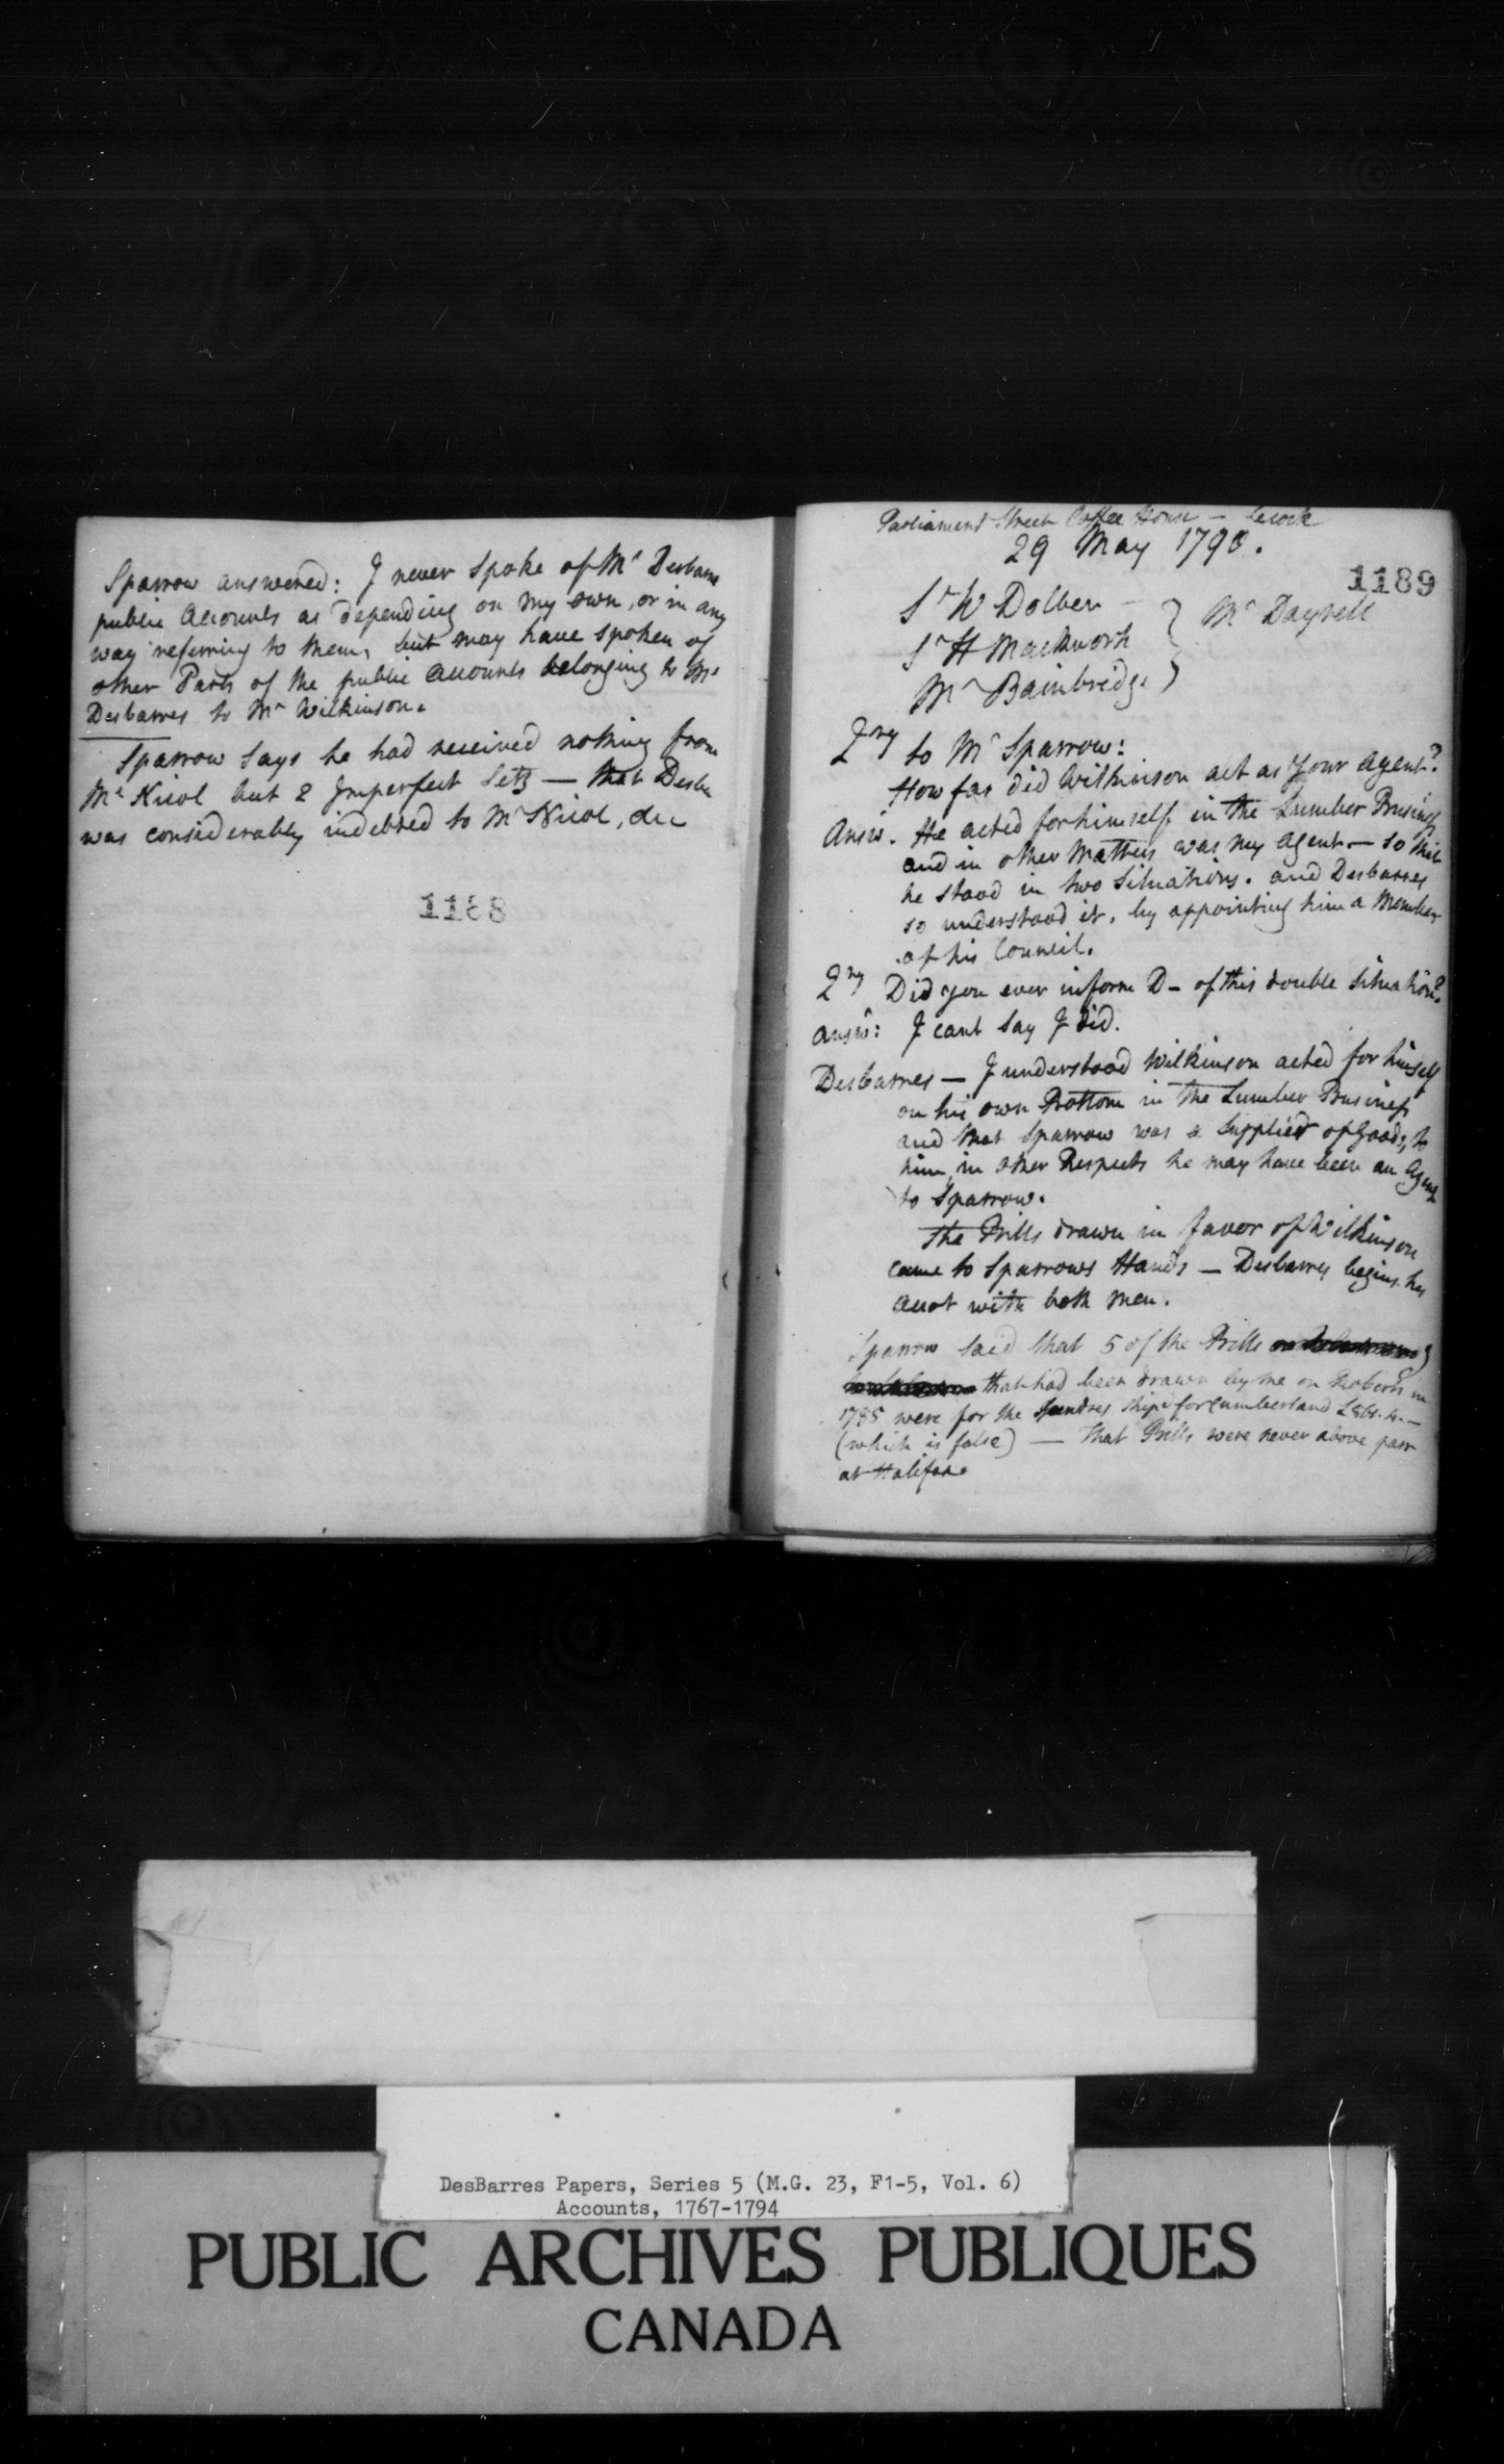 Sparrow answered: I never spoke of Mr Desbarres
public Accounts as depending on my own, or in any
way referring to them, but may have spoken of
other Parts of the public Accounts belonging to Mr
Desbarres to Mr Wilkinson.
Sparrow says he had received nothing from
Mr Nicol but 2 Imperfect Setts — that Desba
was considerably indebted to Mr Nicol, &c
1188
Parliament Street Coffee House —
29 May 1790.
1189
Sr W Dolben —
Sr H Mackworth } Mr Dayrell
Mr Bainbridge
Qry to Mr Sparrow:
How far did Wilkinson act as Your Agent?
Answ. He acted for himself in the Lumber Business
and in other Matters was my Agent — so that
he stood in two Situations. and Desbarres
so understood it, by appointing him a Member
of his Council.
Qry Did you ever inform D— of this double Situation?
Answ: I cant say I did.
Desbarres — I understood Wilkinson acted for himself
on his own Bottom in the Lumber Business
and that Sparrow was a Supplier of Goods, to
him, in other Respects he may have been an Agent
to Sparrow.
The Bills drawn in favor of Wilkinson
came to Sparrows Hands — Desbarres begins his
Accot with both Men.
Sparrow said that 5 of the Bills
that had been drawn by me on Roberts in
1785 were for the Sundries shipd for Cumberland
(which is false) — That Bills were never above parr
at Halifax.
DesBarres Papers, Series 5 (M.G. 23, F1-5, Vol. 6)
Accounts, 1767-1794
PUBLIC ARCHIVES PUBLIQUES
CANADA